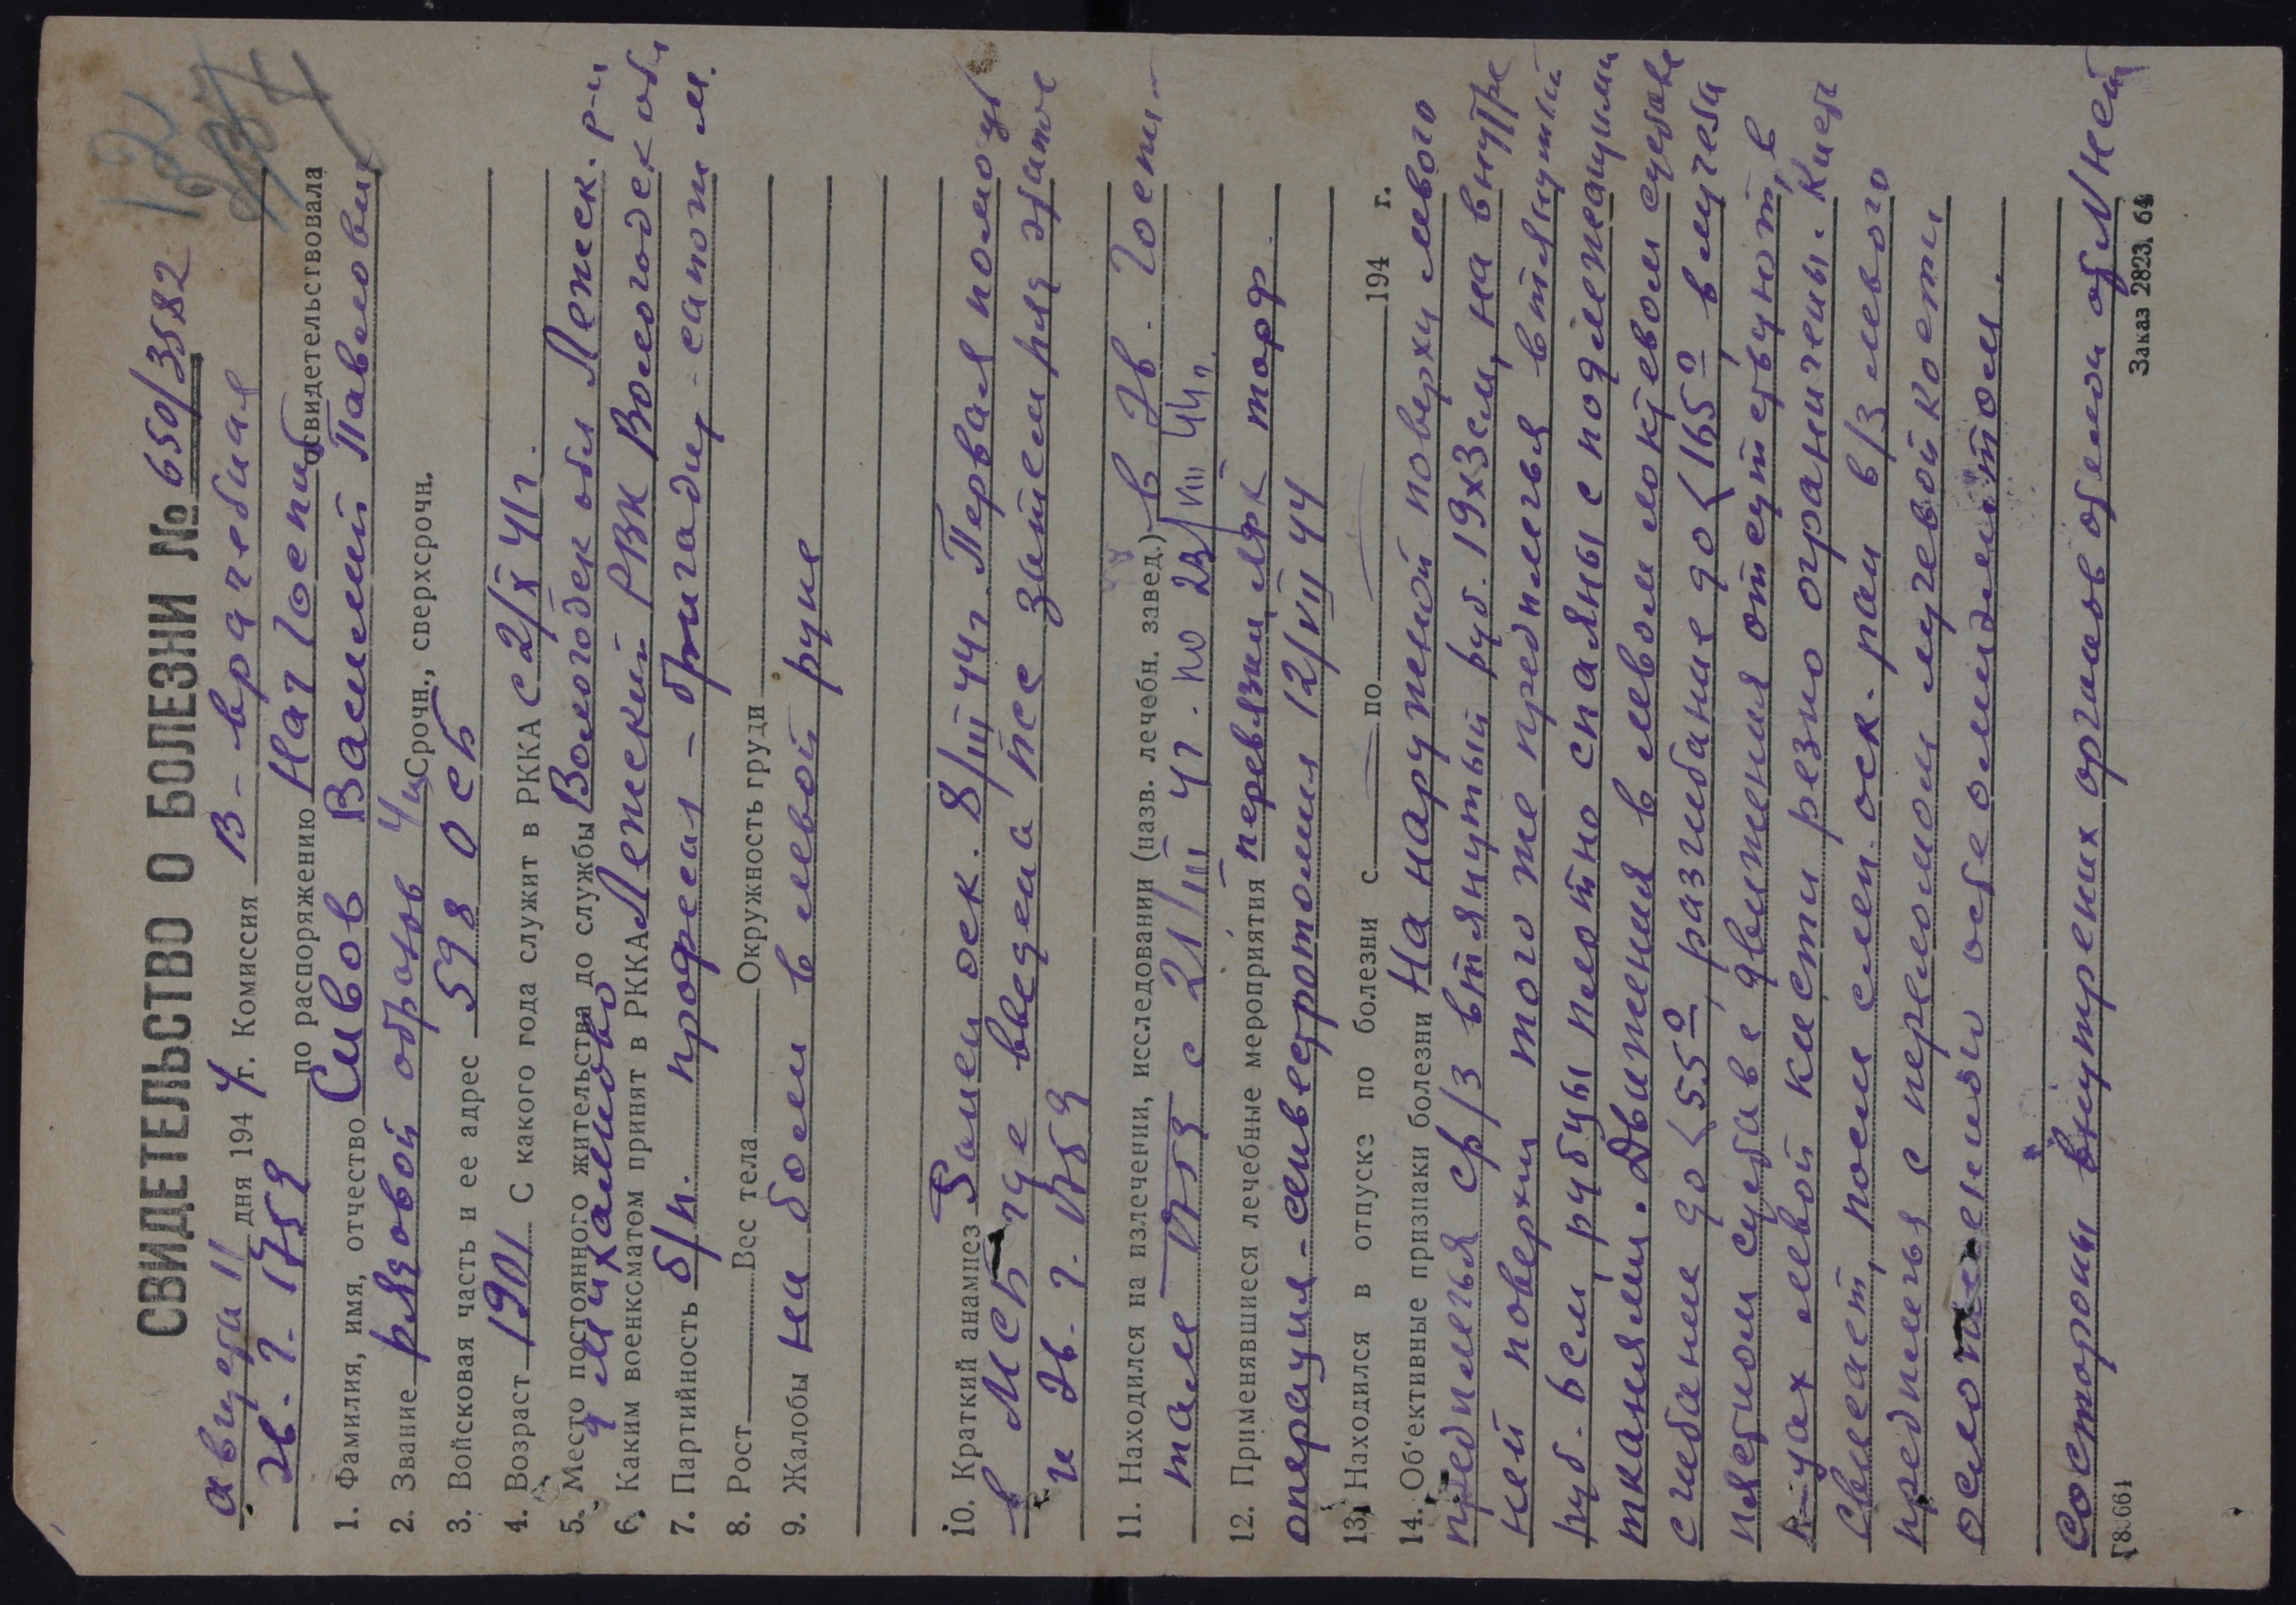 132
СВИДЕТЕЛЬСТВО О БОЛЕЗНИ № 650/3582
августа 11 дня 1944 г. Комиссия В-врачебная
эв. г. 1759 по распоряжению Нач госпит освидетельствовала
1. Фамилия, имя, отчество Сивов Василий Павлович
2. Звание рядовой образов 4 ц Срочн., сверхсрочн.
3. Войсковая часть и ее адрес 598 ОСБ
4. Возраст 1901 С какого года служит в РККА с 2/X 41 г.
5. Место постоянного жительства до службы Вологодск обл Лежск. р-н
6. Каким военксматом принят в РККА Лежский РВК Вологодск обл
7. Партийность б/п. професия - бригадир-сапожн.
8. Рост Вес тела Окружность груди
9. Жалобы на боли в левой руке
10. Краткий анамнез Ранен оск. 8/III 44 г. Первая помощь
в МСБ где введена ПСС затем ряд этапов
и эв. г. 1759
11. Находился на излечении, исследовании (назв. лечебн. завед.) в Эв. Госпи-
тале 1759 с 21/III 44 г. по 23/VIII 44 г.
12. Применявшиеся лечебные мероприятия перевязки, лфк торф
операция-сенвестротомия 12/VII 44
13. Находился в отпуске по болезни с — по — 194 г.
14. Об'ективные признаки болезни На наружной поверхи левого
предплечья ср/з втянутый руб. 19х3 см, на внутре
ней поверхи того же предплечья втянутый
руб. 6 см, рубцы плотно спаяны с подлежащими
тканями. Движения в левом локтевом суставе
сгибание до <55°, разгибание до <165°, в лучеза
пястном суставе движения отсутствуют, в
п-цах левой кисти резно ограничены. Кисть
свисает, после слеп. оск. ран в/з левого
предплечья с переломом лучевой кости
осложненного остеомиэлитом.
Со стороны внутрених органов обмен об/Nней
Г8.661 Заказ 2823. 64